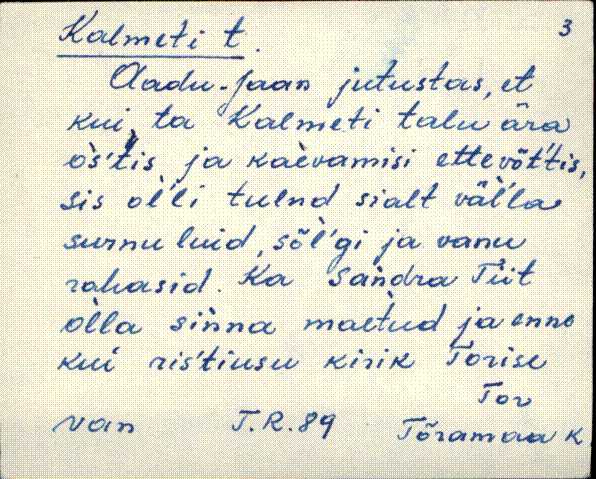 3
Kalmeti t.
Aadu-Jaan jutustas, et
kui, ta Kalmeti talu ära
òs'tis ja kaèvamisi ettevõt'tis,
sis ol'li tulnd sialt väl'la
surnu luid, sõl'gi ja vanu
rahasid. Ka Sandra Tiit
òlla sinna maetud ja enne
kui ris'tiusu kirik Torise
Tor
van T.R.89 Tõramaa K.